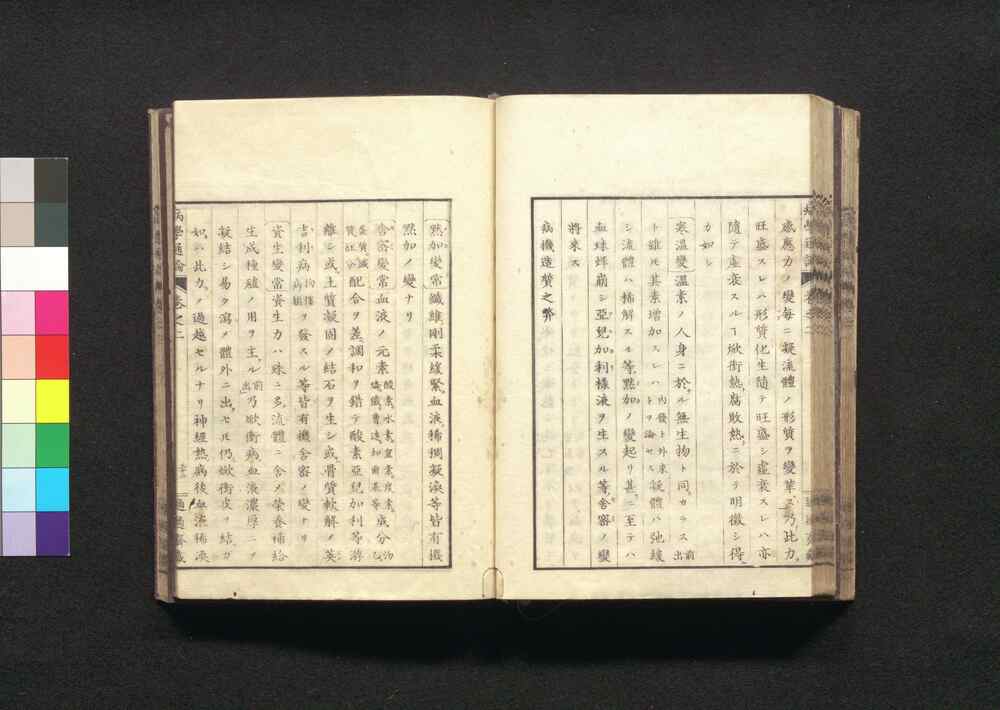 感應力ノ變每ニ凝流體ノ形質ヲ變革ス乃此力
旺盛スレハ形質化生隨テ旺盛シ虛衰スレハ亦
隨テ虛衰スルヿ焮衝熱腐敗熱ニ於テ明徵シ得
カ如シ
寒溫變溫素ノ人身ニ於ル無生物ト同カラス出前
ト雖ヒ其素增加スレハ內發ト外來トヲ論セス凝體ハ弛緩
シ流體ハ稀解スル等默加ノ變起リ甚ニ至テハ
血球坼崩シ亞兒加利樣液ヲ生スル等舍密ノ變
將來ス
病機造質之弊
默加變常纖維剛柔緩緊血液稀稠凝淚等皆有機
默加ノ變ナリ
舍密變常血液ノ元素酸素水素窒素炭素成分
配合ヲ差調和ヲ錯テ酸素亞兒加利等游
離シ或土質凝固ノ結石ヲ生シ或骨質軟解ノ英
吉利病ヲ發スル等皆有機舍密ノ變ナリ
資生變常資生力ハ殊ニ多流體ニ舍メ榮養補給
生成種殖ノ用ヲ主ル前出乃焮衝病血液濃厚ニヲ
凝結シ易ク瀉メ體外ニ出セハ仍焮衝皮ヲ結カ
如ハ此力ノ過越セルナリ神經熱病後血液稀淡
病學通論
卷之二